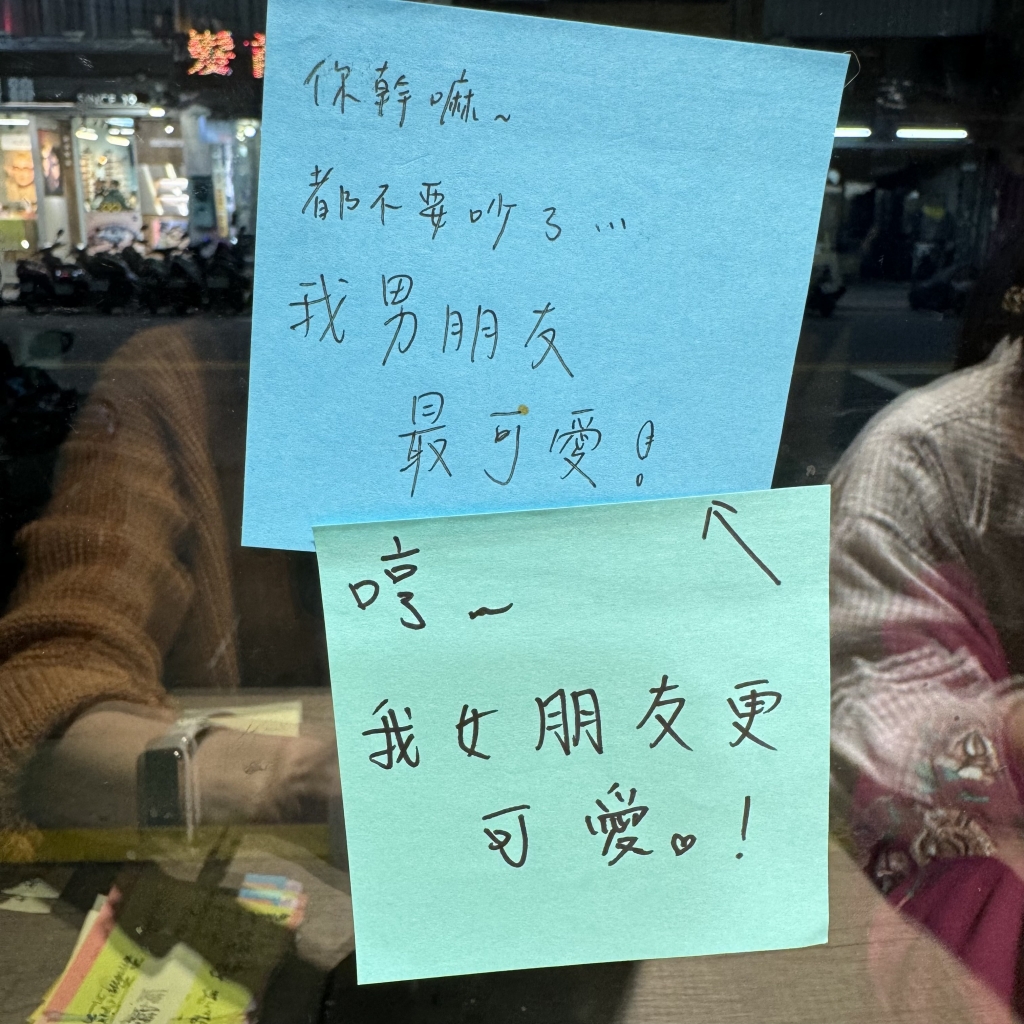 SINCE 19
你幹嘛~
都不要吵了...
我男朋友
最可愛!
哼~
我女朋友更
可愛。♡!